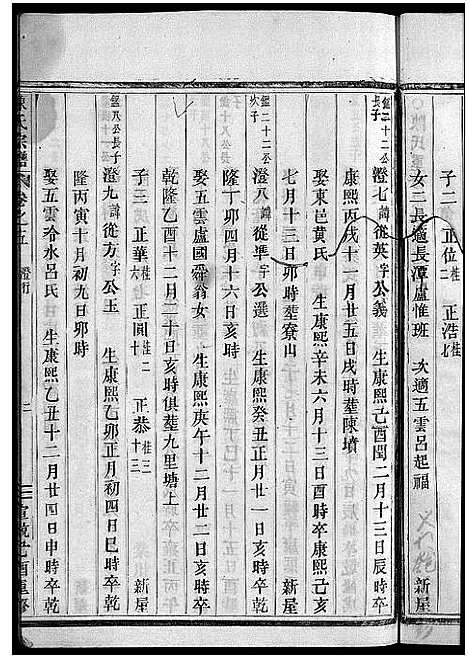 子二 正位桂一 正浩桂七
女二長適長潭盧惟班 次適五雲呂起福 新屋
鑑二十二公長子 澄七諱從英字公義 生康熙己酉閏二月十三日辰時卒
康熙丙戌十一月廿五日戌時塟陳墳
娶東邑黃氏 生康熙辛未六月十三日酉時卒康熙乙亥
七月十三日卯時塟寮山 新屋
鑑二十二公次子 澄八諱從準字公選 生康熙癸丑正月廿一日亥時卒乾
隆丁卯四月十六日亥時
娶五雲盧國舜翁女 生康熙庚午十二月廿二日亥時卒
乾隆乙酉十二月二十日亥時俱塟九里塘上
子三 正華桂六 正圓桂十二 正恭桂十三 新屋
鑑十八公長子 澄九諱從方字公玉 生康熙乙卯正月初四日巳時卒乾
隆丙寅十月初九日卯時
娶五雲冶水呂氏 生康熙乙丑十二月廿四日申時卒乾
陳氏宗譜 卷之五 澄行 二 宣統己酉重修